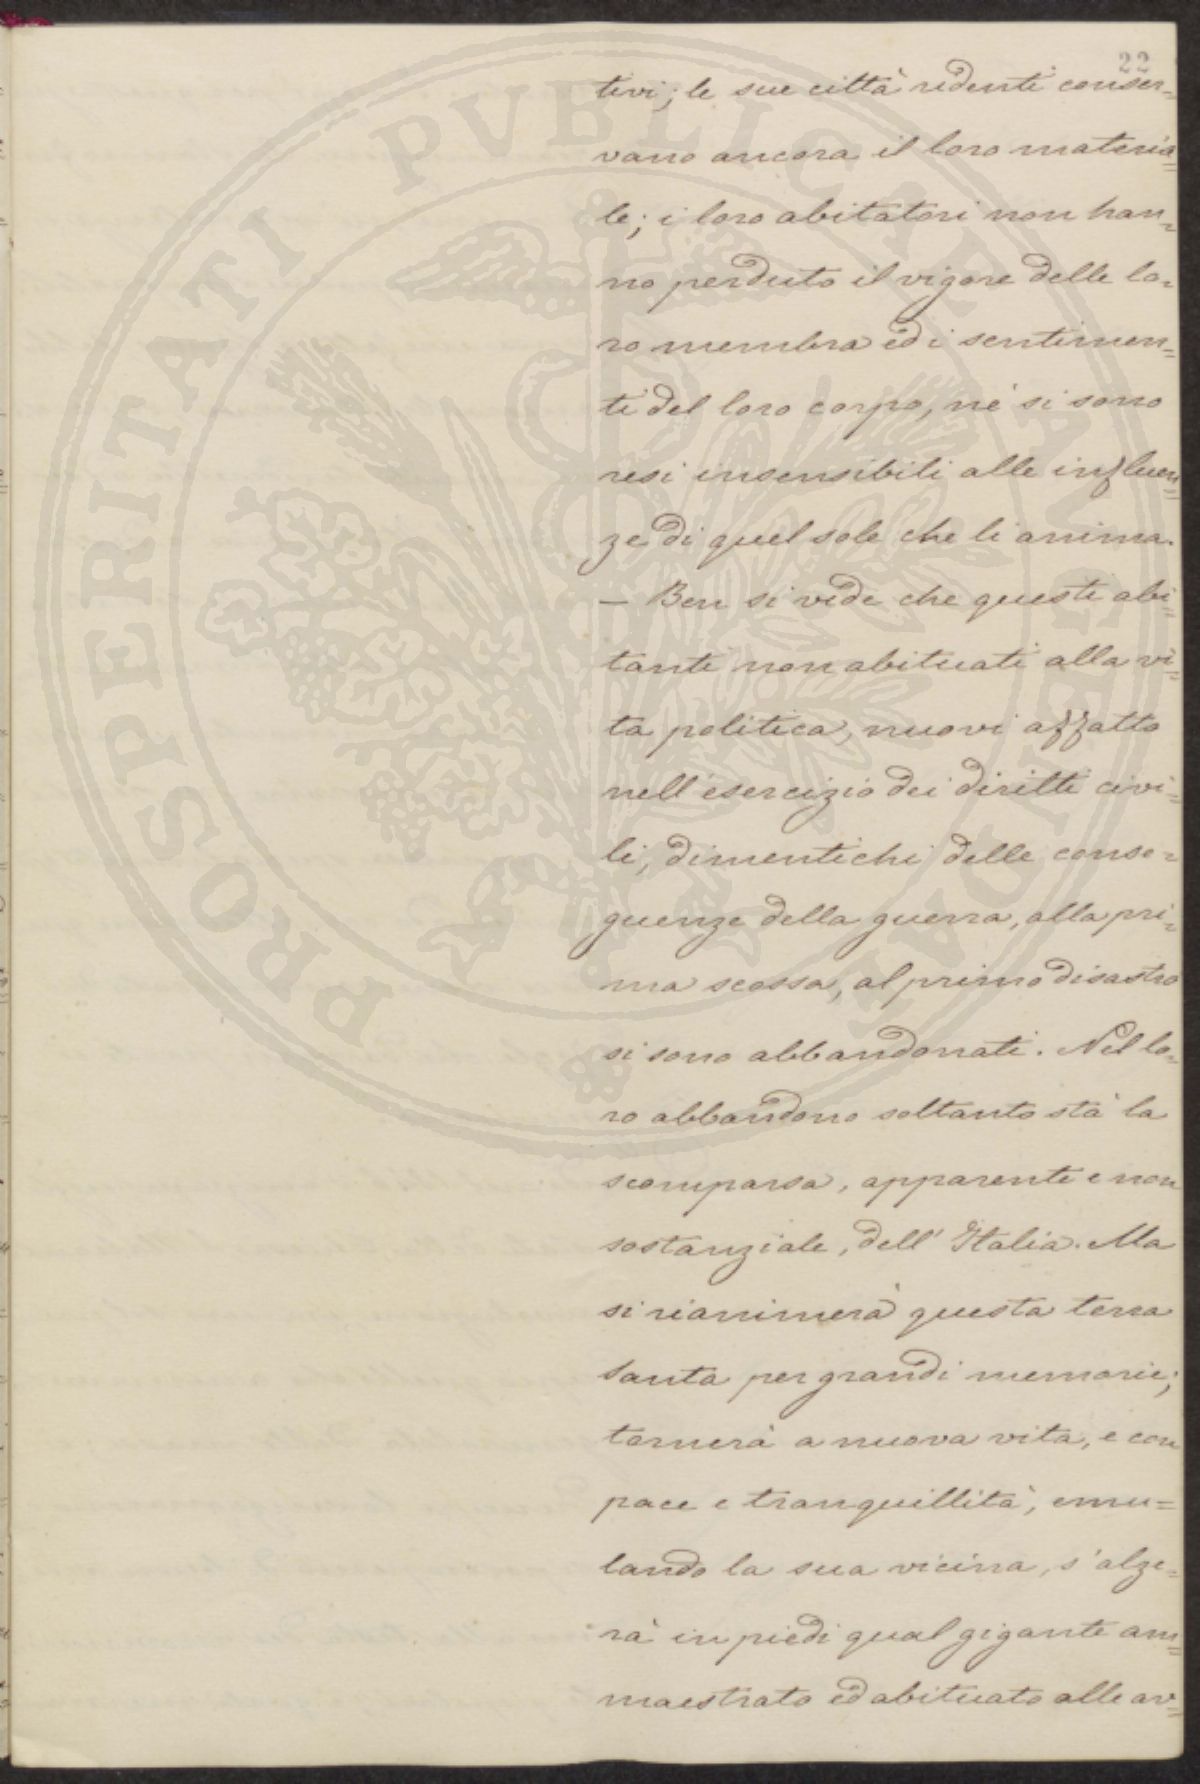 22
tivi; le sue città ridenti conser=
vano ancora il loro materia=
le; i loro abitatori non han=
no perduto il vigore delle lo=
ro membra ed i sentimen=
ti del loro corpo, nè si sono
resi insensibili alle influen=
ze di quel sole che li anima.
— Ben si vede che questi abi=
tanti non abituati alla vi=
ta politica, nuovi affatto
nell'esercizio dei diritti civi=
li, dimentichi delle conse=
guenze della guerra, alla pri=
ma scossa, al primo disastro
si sono abbandonati. Nel lo=
ro abbandono soltanto stà la
scomparsa, apparente e non
sostanziale, dell'Italia. Ma
si rianimerà questa terra
santa per grandi memorie;
tornerà a nuova vita, e con
pace e tranquillità, emu=
lando la sua vicina, s'alze=
rà in piedi qual gigante am=
maestrato ed abituato alle av=
PROSPERITATI PVBLICAE AVGENDAE